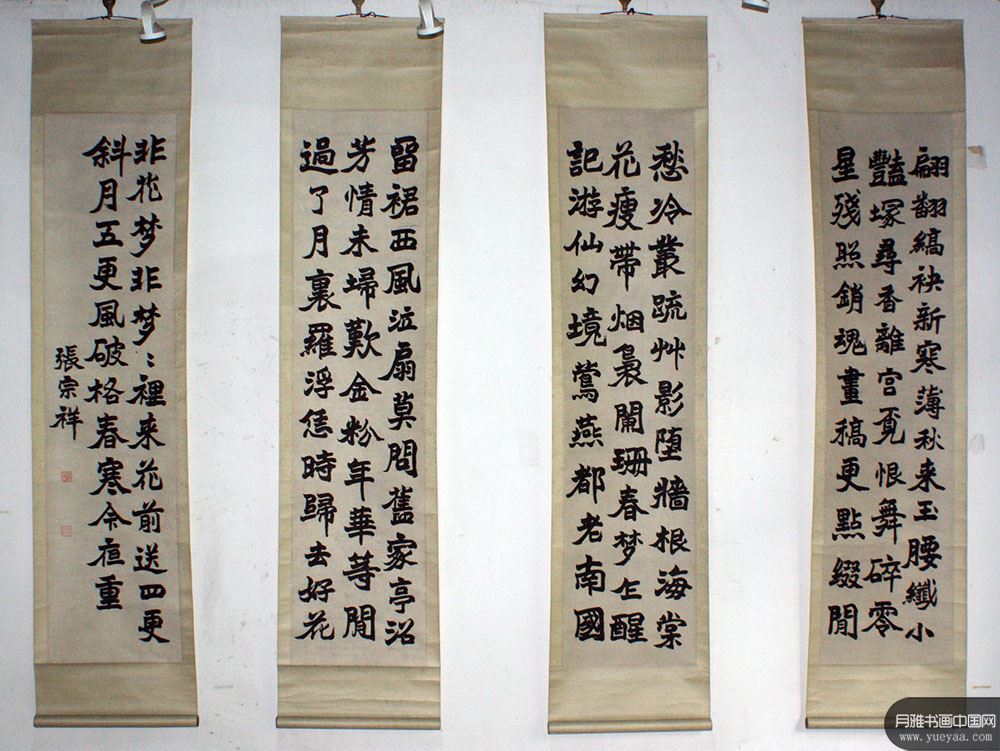 翩翻縞袂新寒薄秋来玉腰纖小
豔塚尋香離宮覓恨舞碎零
星殘照銷魂畫稿更點綴閒
愁冷叢疏艸影墮牆根海棠
花瘦帶烟裊闌珊春梦乍醒
記游仙幻境鶯燕都老南國
留裙西風泣扇莫問舊家亭沼
芳情未埽歎金粉年華等閒
過了月裏羅浮恁時歸去好花
非花梦非梦〻裡来花前送四更
斜月五更風破格春寒今夜重
張宗祥
月雅书画中国网
www.yueyaa.com